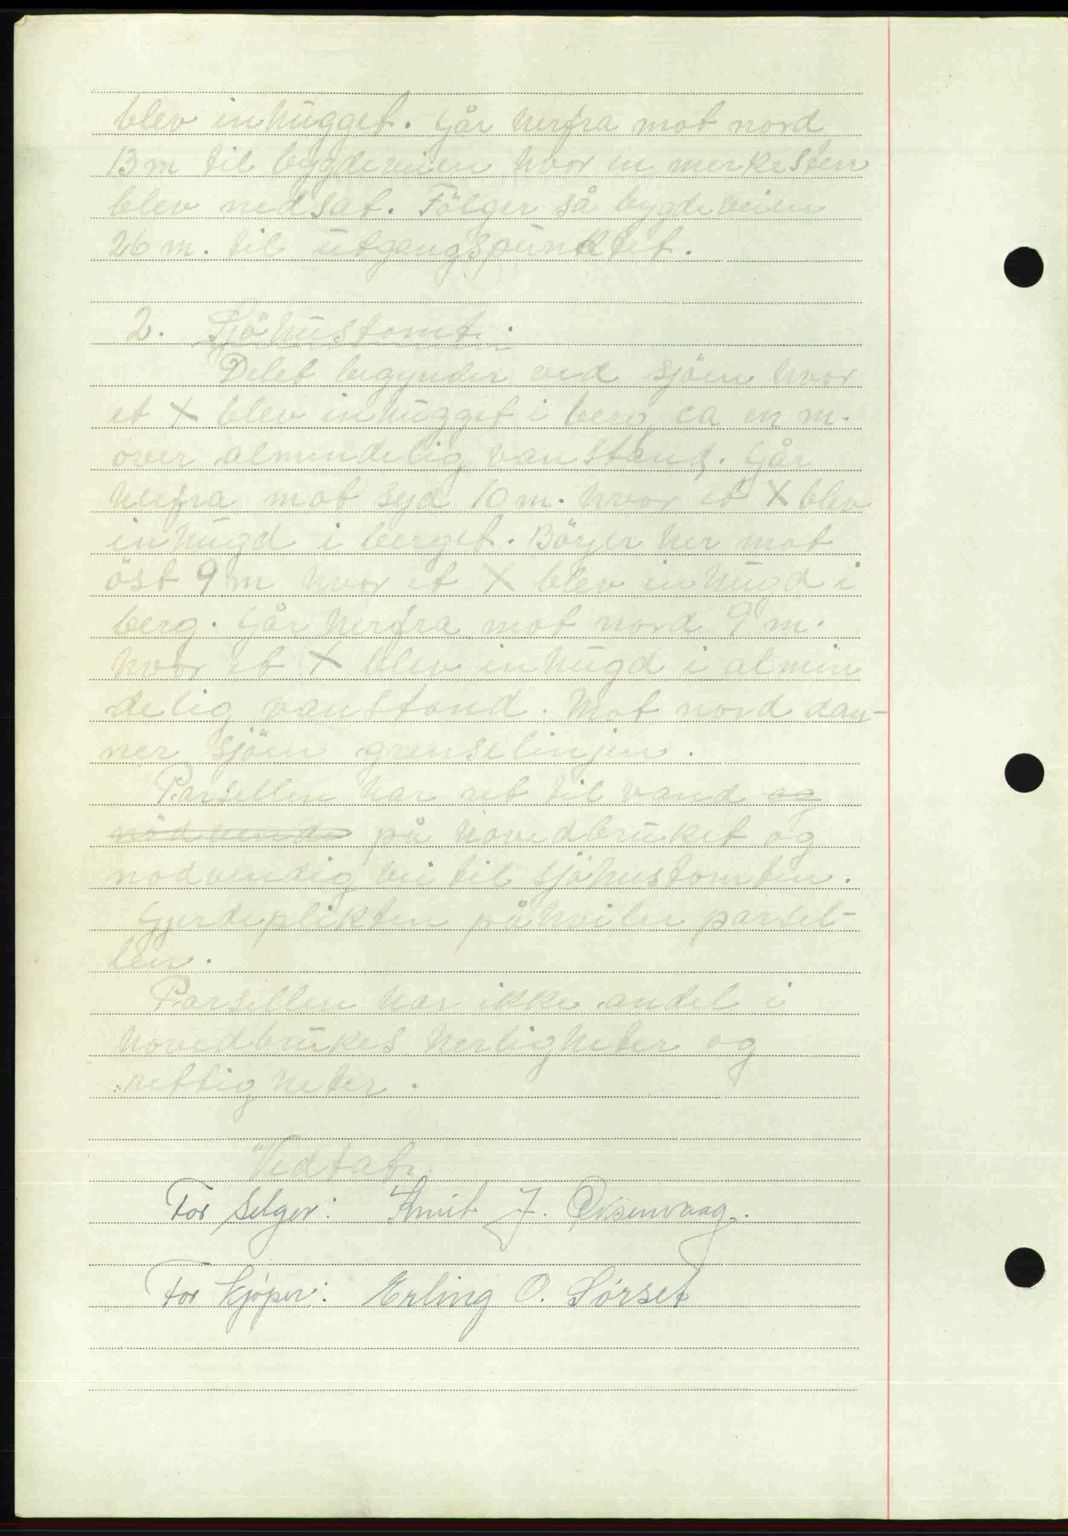 blev inhugget. Går herfra mot nord
13 m til bygdeveien hvor en merkesten
blev nedsat. Fölger så bygdeveien
26 m. til utgangspunktet.
2. Sjöhustomt.
Delet begynder ved sjöen hvor
et X blev inhugget i berg ca en m.
over almindelig vanstand. Går
herfra mot syd 10 m. hvor et X blev
inhugd i berget. Böyer her mot
öst 9 m hvor et X blev inhugd i
berg. Går herfra mot nord 9 m.
hvor et X blev inhugd i almin
delig vanstand. Mot nord dan-
ner sjöen grenselinjen.
Parsellen har ret til vand og
nödvende på hovedbruket og
nodvendig vei til sjöhustomten.
Gjerdeplikten påhviler parsel-
len.
Parsellen har ikke andel i
hovedbrukes herligheter og
rettigheter.
Vedtat.
For selger: Knut J. Oksenvaag.
For kjøper: Erling O. Sørset